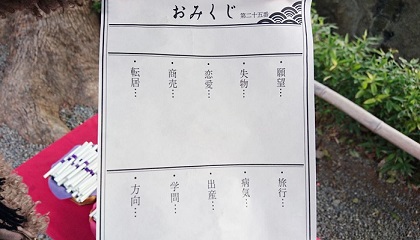 おみくじ 第二十五番
・願望…
・失物…
・恋愛…
・商売…
・転居…
・旅行…
・病気…
・出産…
・学問…
・方向…